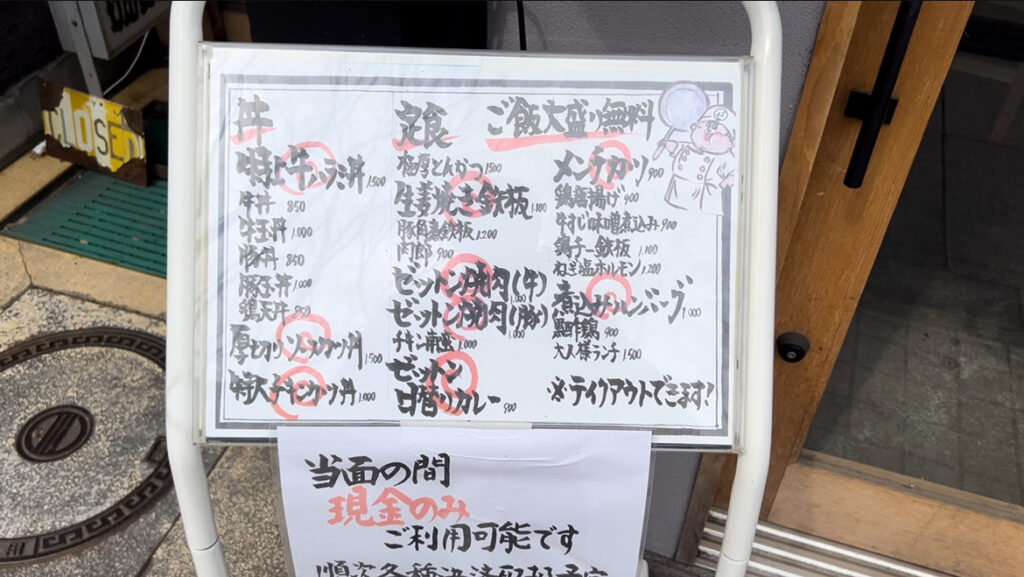 丼
特上牛ハラミ丼 1500
牛丼 850
牛玉丼 1,000
豚丼 850
豚玉丼 1,000
鶏天丼 850
厚切りソースカツ丼 1500
特大チキンカツ丼 1,000
定食
極厚とんかつ 1500
生姜焼き鉄板 1,100
豚角煮鉄板 1,200
肉郎 900
ゼットン焼肉(牛) 1,000
ゼットン焼肉(豚) 1,000
チキン南蛮 1,000
ゼットン
日替りカレー 900
ご飯大盛り無料
メンチカツ 900
鶏唐揚げ 900
牛すじ味噌煮込み 900
鶏チー鉄板 1,100
ねぎ塩ホルモン 1,200
煮込みハンバーグ 1,000
油淋鶏 900
大人様ランチ 1500
※テイクアウトできます!
当面の間
現金のみ
ご利用可能です
順次各種決済
CLOSE